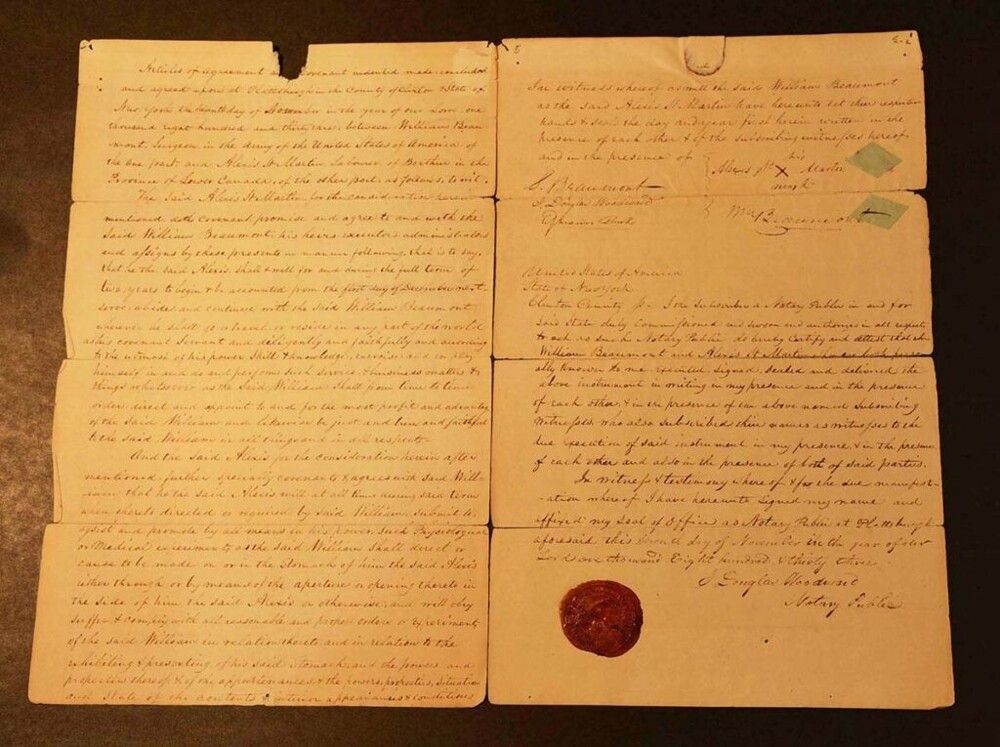 Articles of Agreement and Covenant indented made concluded
and agreed upon at Plattsburgh in the County of Clinton & State of
New York the Seventh day of November in the year of our Lord one
thousand eight hundred and thirty three between William Beau-
mont, Surgeon in the Army of the United States of America of
the One part and Alexis St Martin Labourer of Berthier in the
Province of Lower Canada, of the other part, as follows, to wit.
The Said Alexis St Martin for the consideration herein
mentioned doth covenant promise and agree to and with the
Said William Beaumont his heirs executors administrators
and assigns by these presents in manner following, that is to say,
that he the said Alexis shall & will for and during the full term of
two years to begin & be accounted from the first day of December next
serve, abide and continue with the Said William Beaumont
wherever he shall go or travel or reside in any part of the world
as his covenant Servant and diligently and faithfully and according
to the utmost of his power skill & knowledge, exercise and employ
himself in and as and perform such service & business matters &
things whatsoever as the Said William Shall from time to time
order, direct and appoint to and for the most profit and advantage
of the Said William and likewise be just and true and faithful
to the said William in all things and in all respects
And the said Alexis for the consideration herein after
mentioned further specially covenants & agrees with Said Will-
iam that he the said Alexis will at all times during said term
when thereto directed or required by said William, submit to,
assist and promote by all means in his power, Such Physiological
or Medical experiments as the said William Shall direct or
cause to be made on or in the Stomach of him the Said Alexis
either through or by means of the aperture or opening thereto in
the side of him the said Alexis or otherwise, and will obey
suffer & comply with all reasonable and proper orders or experiment
of the said William in relation thereto and in relation to the
exhibiting & presenting of his Said Stomach and the powers and
properties thereof & of the appurtenances & the powers, properties, situation
and State of the contents & interior appearances & conditions
8
In witness whereof as well the said William Beaumont
as the said Alexis St Martin have hereunto set their respective
hands & seals the day and year first herein written in the
presence of each other & of the subscribing witnesses hereof
and in the presence of
Alexis St his X mark Martin
S. Beaumont
J. Douglas Woodward
Wm Beaumont
United States of America
State of New York
Clinton County I the Subscriber a Notary Public in and for
Said State duly Commissioned and sworn and authorized in all respects
to act as such Notary Public do hereby Certify and attest that the
William Beaumont and Alexis St Martin who are both person-
ally known to me executed, signed, sealed and delivered the
above instrument in writing in my presence and in the presence
of each other, & in the presence of the above named Subscribing
witnesses who also subscribed their names as witnesses to the
due execution of said instrument in my presence & in the presence
of each other and also in the presence of both of said parties.
In witness & testimony whereof & for the due manifest-
-ation whereof I have hereunto signed my name and
affixed my Seal of Office as Notary Public at Plattsburgh
aforesaid this Seventh day of November in the year of our
Lord one thousand Eight hundred & thirty three.
J. Douglas Woodward
Notary Public